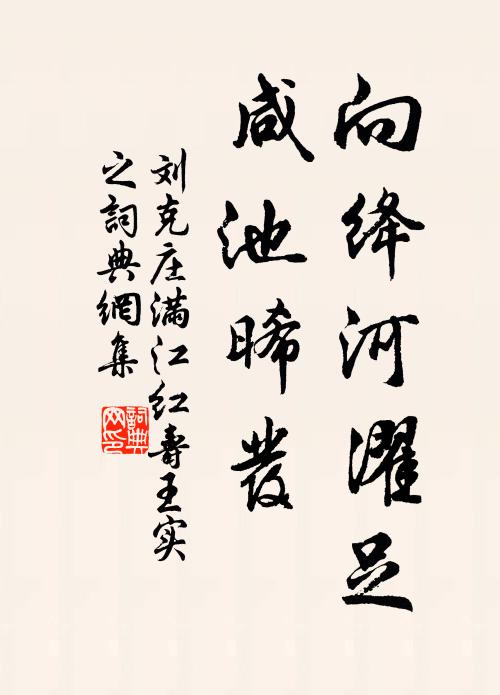 向绛河濯足
咸池晞發
刘克庄满江红壽王实
之詞典網集
詞典网印